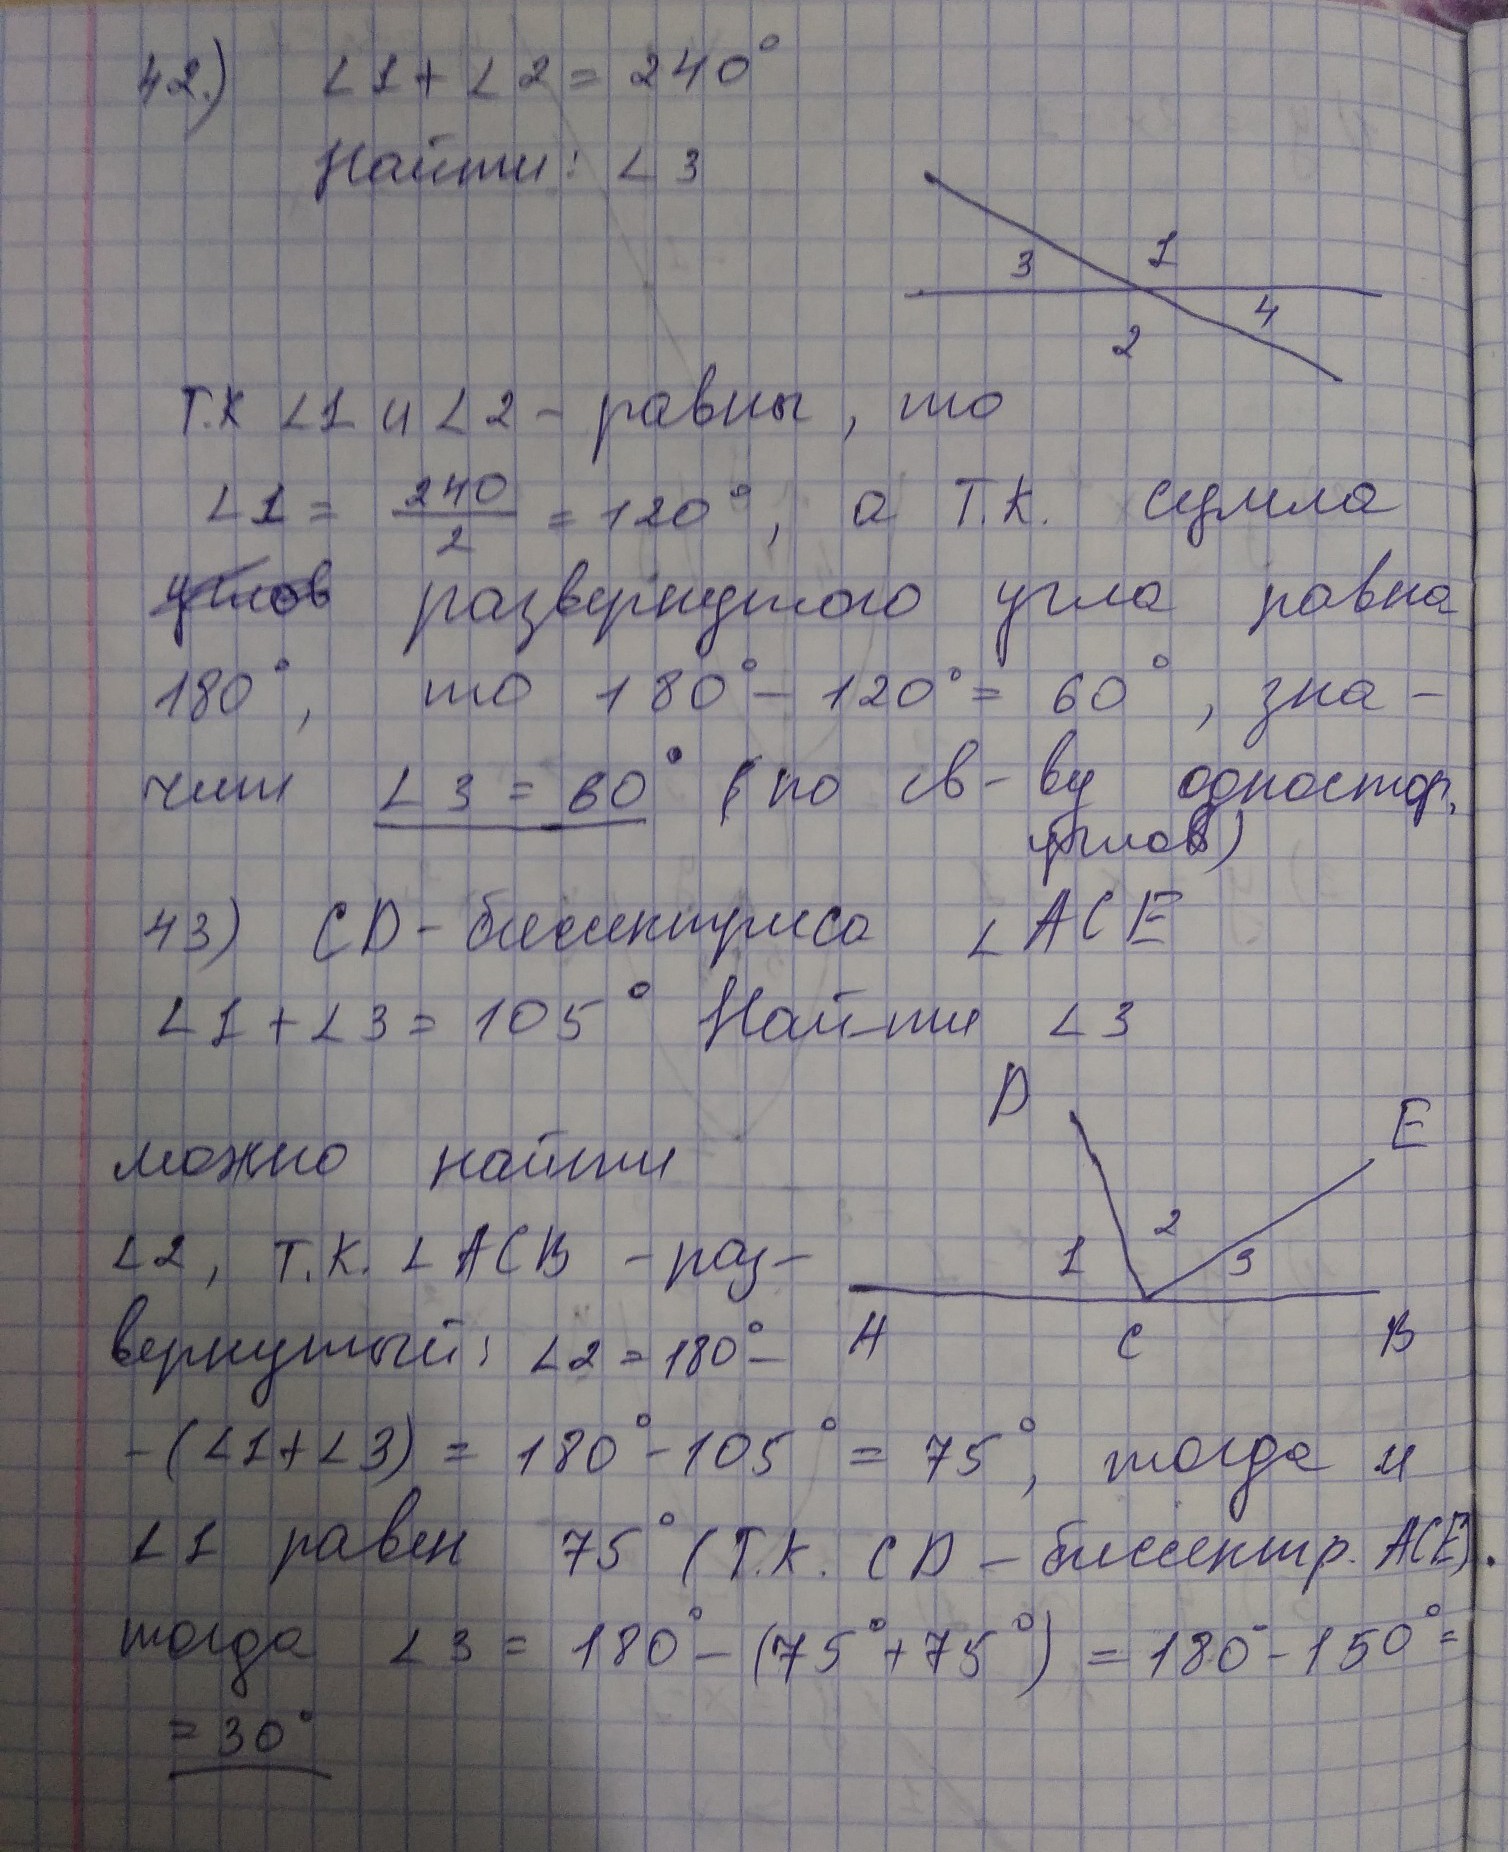 42.) ∠1 + ∠2 = 240°
Найти: ∠3
3 1
4
2
Т.К ∠1 и ∠2 - равны, то
∠1 = 240/2 = 120°, а Т.К. сумма
углов развернутого угла равна
180°, то 180° - 120° = 60°, зна-
чит ∠3 = 60° (по св-ву одностор.
углов)
43) CD - биссектриса ∠ACE
∠1 + ∠3 = 105° Найти ∠3
D
E
можно найти
∠2, Т.К. ∠ACB - раз-
1 2 3
вернутый: ∠2 = 180° -
A C B
- (∠1 + ∠3) = 180° - 105° = 75°, тогда и
∠1 равен 75° (Т.К. CD - биссектр. ACE).
тогда ∠3 = 180° - (75° + 75°) = 180° - 150° =
= 30°